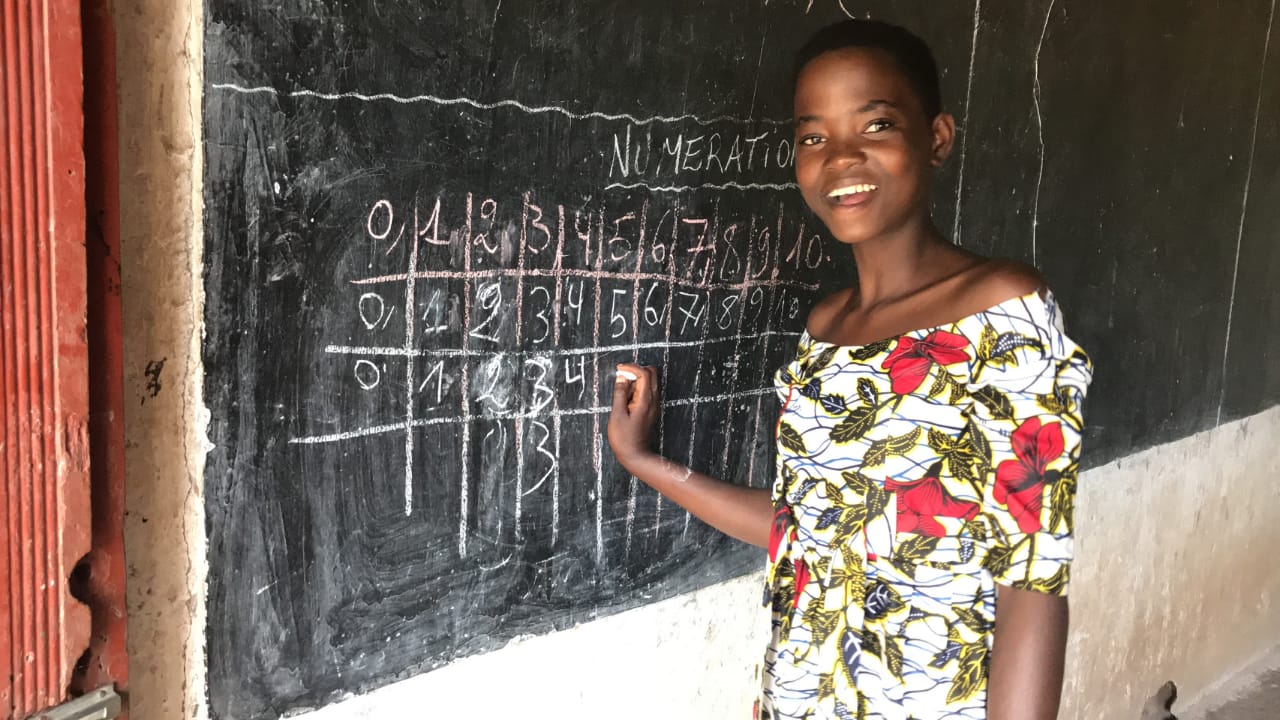 NUMERATIO
0, 1 2 3 4 5 6 7 8 9 10.
0, 1 2 3 4 5 6 7 8 9 10
0 1 2 3 4
3